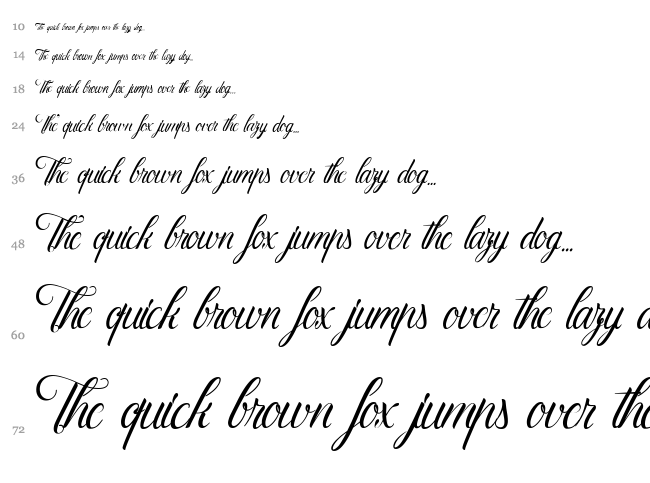 10 The quick brown fox jumps over the lazy dog...
14 The quick brown fox jumps over the lazy dog...
18 The quick brown fox jumps over the lazy dog...
24 The quick brown fox jumps over the lazy dog...
36 The quick brown fox jumps over the lazy dog...
48 The quick brown fox jumps over the lazy dog...
60 The quick brown fox jumps over the lazy d
72 The quick brown fox jumps over the